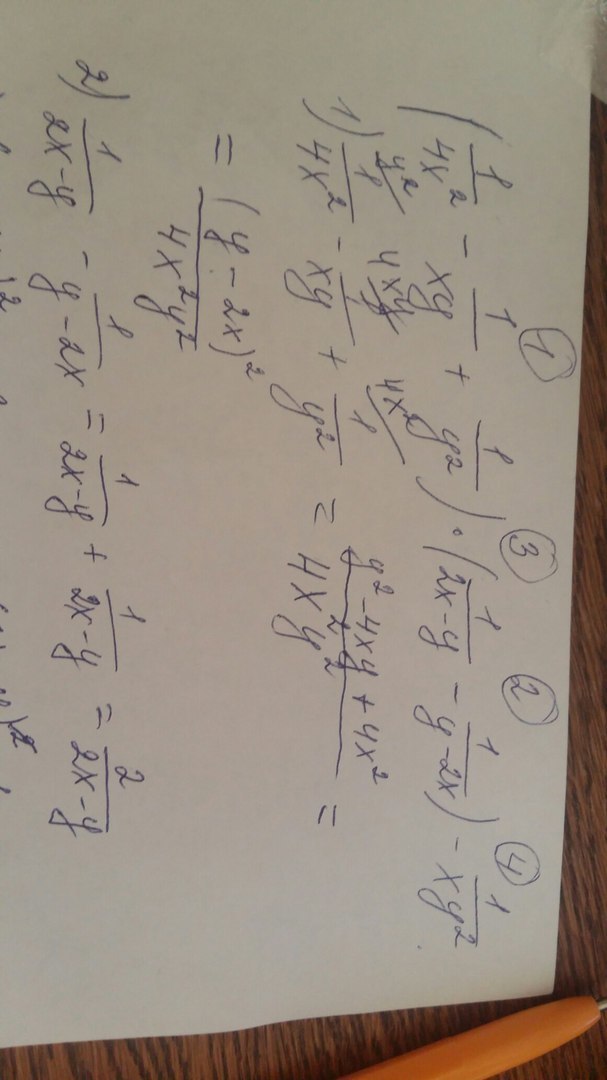 ① ③ ② ④
(1/4x² - 1/xy + 1/y²) · (1/2x-y - 1/y-2x) - 1/xy²
y² 4xy 4x²
1) 1/4x² - 1/xy + 1/y² = y² - 4xy + 4x²/4x²y² =
= (y - 2x)²/4x²y²
2) 1/2x-y - 1/y-2x = 1/2x-y + 1/2x-y = 2/2x-y